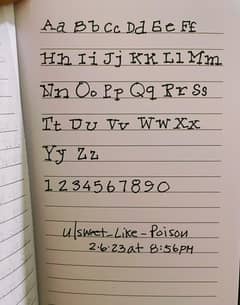 Aa Bb Cc Dd Ee Ff
Hh Ii Jj Kk Ll Mm
Nn Oo Pp Qq Rr Ss
Tt Uu Vv Ww Xx
Yy Zz
1234567890
u/sweet_Like_Poison
2.6.23 at 8:56PM